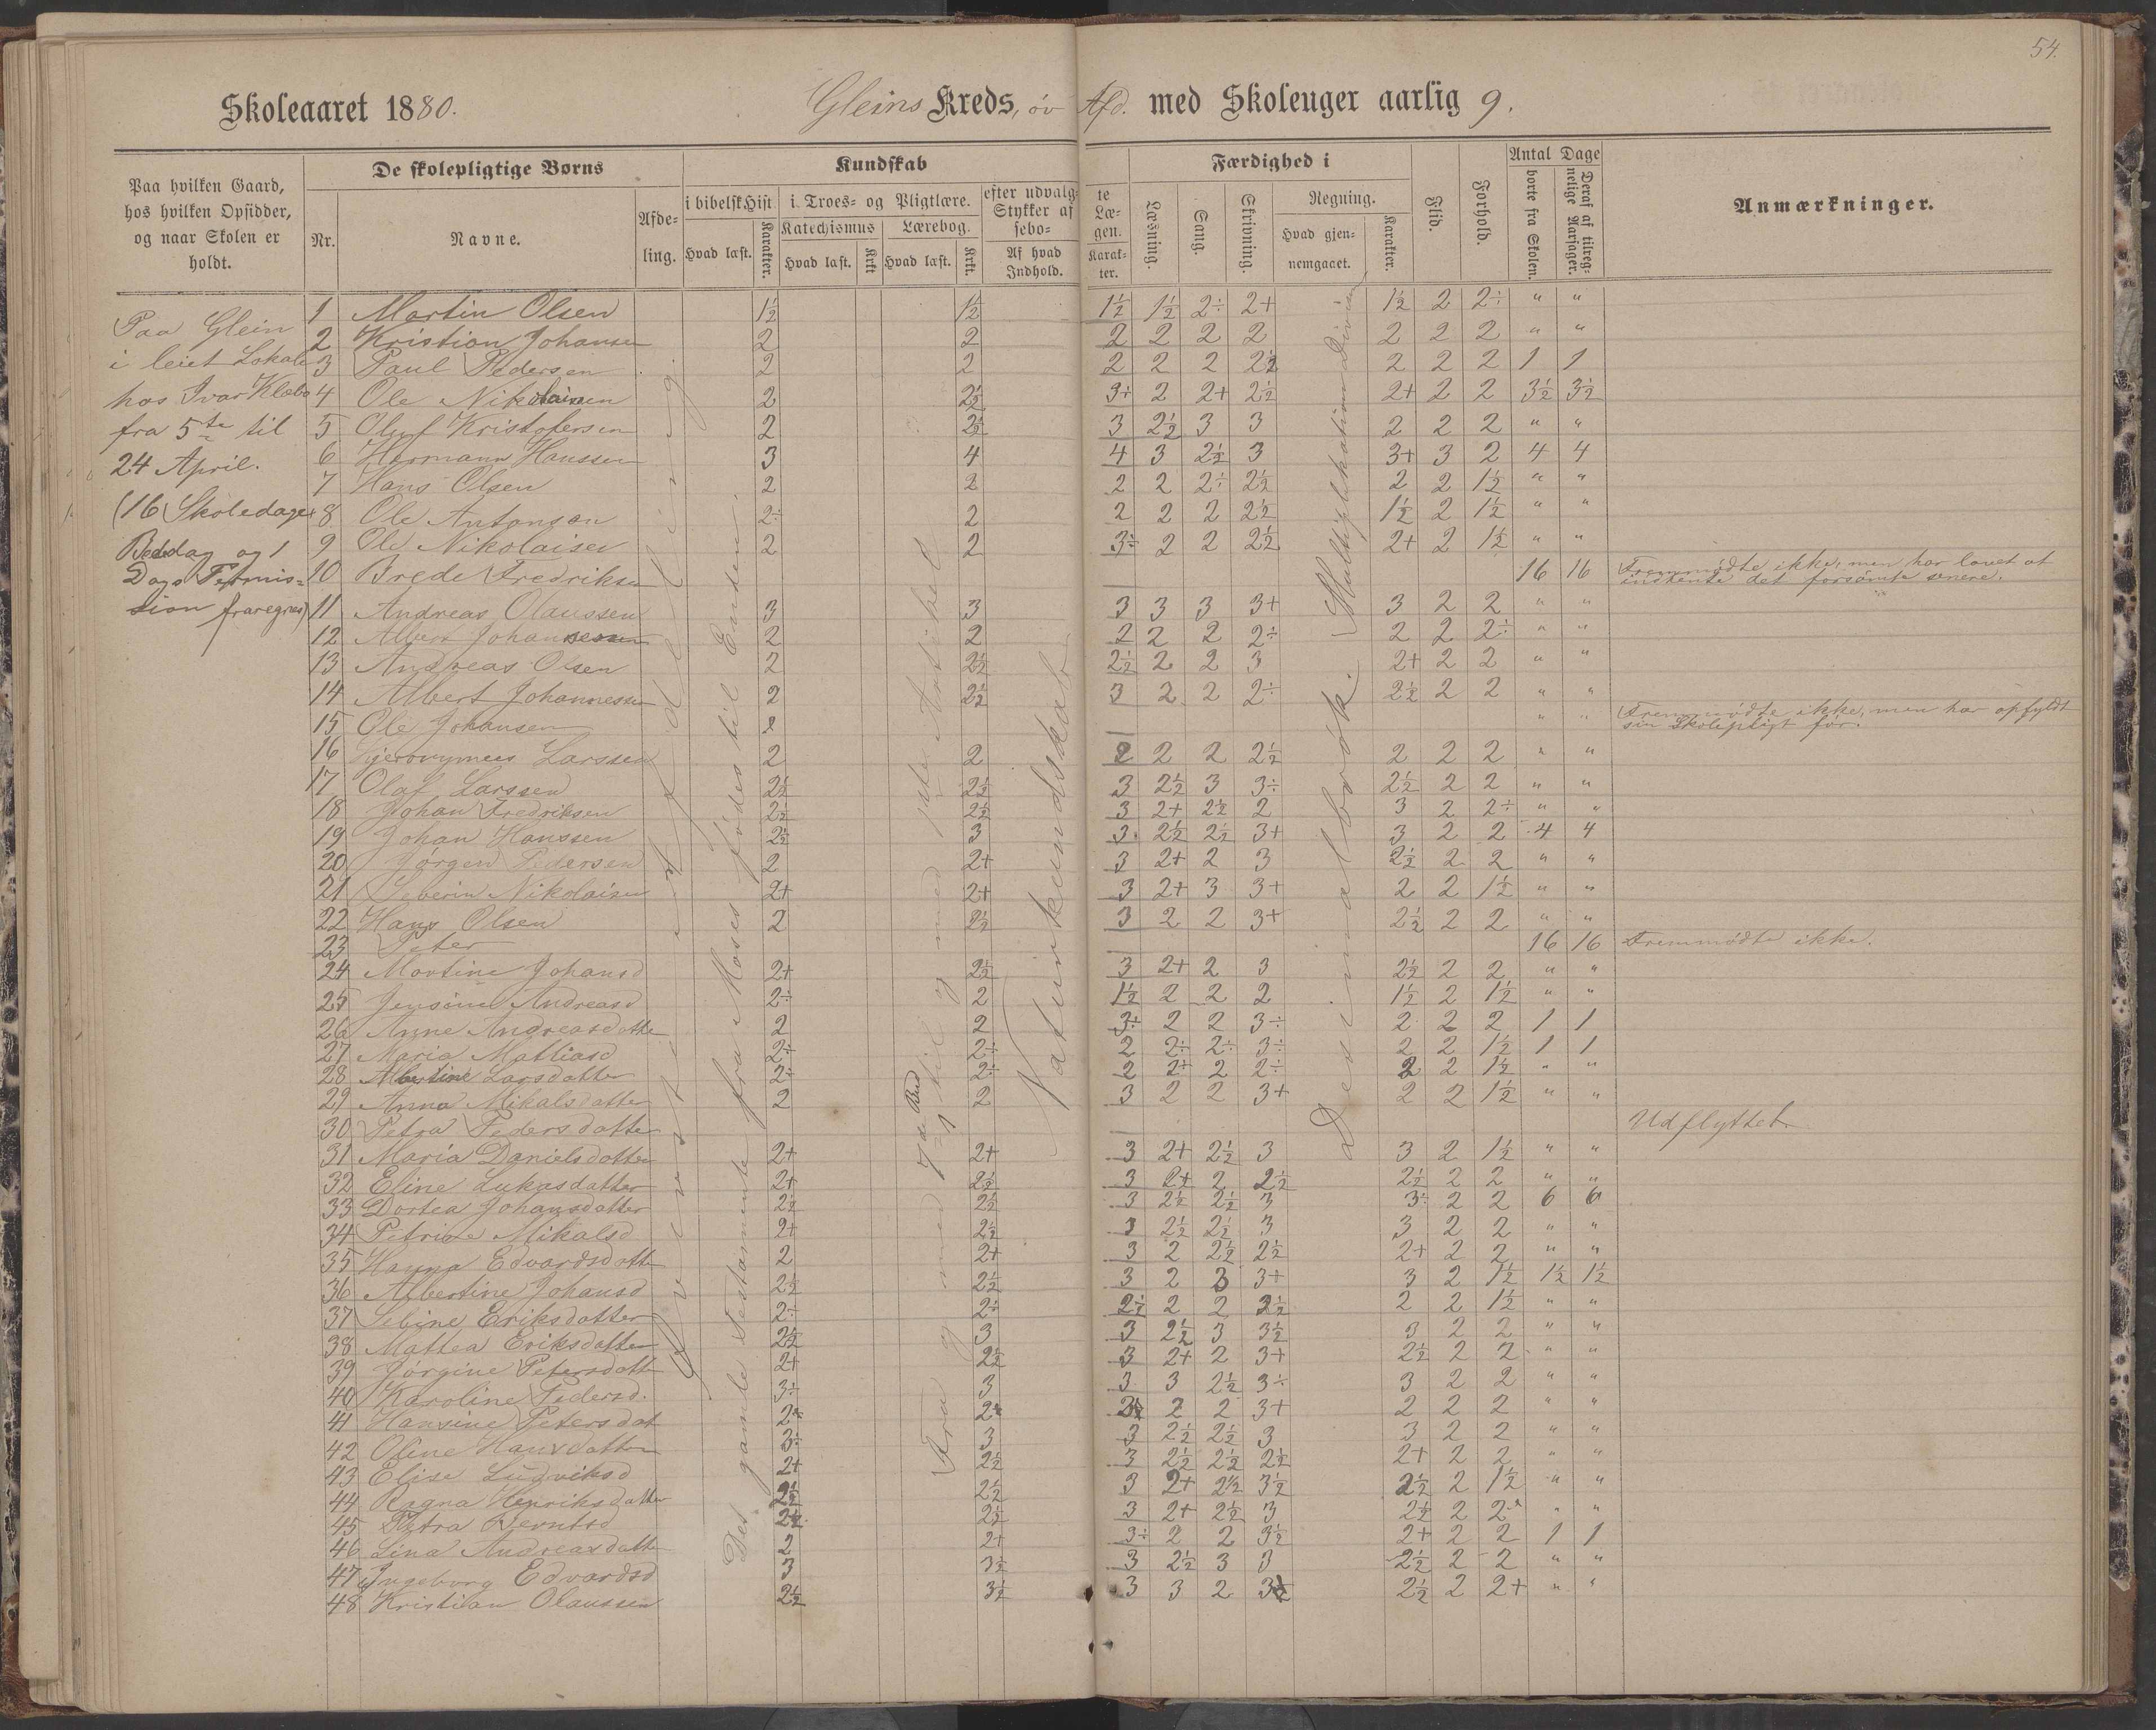 54.
Skoleaaret 1880.
Gleins Kreds, öv Afd. med Skoleuger aarlig 9.
Paa hvilken Gaard, hos hvilken Opsidder, og naar Skolen er holdt.
De skolepligtige Børns
Nr.
Navne.
Afdeling.
Kundskab
i bibelsk Hist.
Hvad læst.
Karakter.
i Troes- og Pligtlære.
Katechismus
Hvad læst.
Krkt.
Lærebog.
Hvad læst.
Krkt.
efter udvalgte Stykker af Læsebogen.
Af hvad Indhold.
Karakter.
Færdighed i
Læsning.
Sang.
Skrivning.
Regning.
Hvad gjennemgaaet.
Karakter.
Flid.
Forhold.
Antal Dage
borte fra Skolen.
Deraf af tilregnelige Aarsager.
Anmærkninger.
Paa Glein
i leiet Lokale
hos Ivar Klæbo
fra 5te til
24 April.
(16 Skoledage
Bededag og 1
Dags Permis-
sion fraregnes)
Øverste Afdeling.
Det gamle Testamente fra Moses' födes til Enden.
Fra og med 7de Bud til og med 3die Artikel
Naturkundskab
Desimalbrök. Multiplikation Divisi
1 Martin Olsen 1½ 1½ 1½ 1½ 2÷ 2+ 1½ 2 2÷ " "
2 Kristian Johansen 2 2 2 2 2 2 2 2 2 " "
3 Paul Pedersen 2 2 2 2 2 2½ 2 2 2 1 1
4 Ole Nikolaisen 2 2½ 3+ 2 2+ 2½ 2+ 2 2 3½ 3½
5 Oluf Kristofersen 2 2½ 3 2½ 3 3 2 2 2 " "
6 Hermann Hanssen 3 4 4 3 2½ 3 3+ 3 2 4 4
7 Hans Olsen 2 2 2 2 2÷ 2½ 2 2 1½ " "
8 Ole Antonsen 2÷ 2 2 2 2 2½ 1½ 2 1½ " "
9 Ole Nikolaisen 2 2 3÷ 2 2 2½ 2+ 2 1½ " "
10 Brede Fredriksen 16 16 Fremmødte ikke, men har lovet at
indhente det forsömte senere.
11 Andreas Olaussen 3 3 3 3 3 3+ 3 2 2 " "
12 Albert Johannessen 2 2 2 2 2 2÷ 2 2 2÷ " "
13 Andreas Olsen 2 2½ 2½ 2 2 3 2+ 2 2 " "
14 Albert Johannessen 2 2½ 3 2 2 2÷ 2½ 2 2 " "
15 Ole Johansen " " Fremmødte ikke, men har opfyldt
sin Skolepligt för.
16 Hjeronymus Larssen 2 2 2 2 2 2½ 2 2 2 " "
17 Olaf Larssen 2½ 2½ 3 2½ 3 3÷ 2½ 2 2 " "
18 Johan Fredriksen 2½ 2½ 3 2+ 2½ 2 3 2 2÷ " "
19 Johan Hanssen 2½ 3 3 2½ 2½ 3+ 3 2 2 4 4
20 Jörgen Pedersen 2 2+ 3 2+ 2 3 2½ 2 2 " "
21 Severin Nikolaisen 2+ 2+ 3 2+ 3 3+ 2 2 1½ " "
22 Hans Olsen 2 2½ 3 2 2 3+ 2½ 2 2 " "
23 Peter 16 16 Fremmödte ikke.
24 Martine Johansd 2+ 2½ 3 2+ 2 3 2½ 2 2 " "
25 Jensine Andreasd 2÷ 2 1½ 2 2 2 1½ 2 1½ " "
26 Anne Andreasdatter 2 2 3÷ 2 2 3÷ 2 2 2 1 1
27 Maria Mathiasd 2÷ 2÷ 2 2÷ 2÷ 3÷ 2 2 1½ 1 1
28 Albertine Larsdatter 2÷ 2÷ 2 2÷ 2 2÷ 2 2 1½ " "
29 Anna Mikalsdatter 2 2 3 2 2 3+ 2 2 1½ " "
30 Petra Pedersdatter Udflyttet.
31 Maria Danielsdatter 2+ 2+ 3 2+ 2½ 3 3 2 1½ " "
32 Eline Lukasdatter 2+ 2½ 3 2+ 2 2½ 2½ 2 2 " "
33 Dortea Johansdatter 2½ 2½ 3 2½ 2½ 3 3÷ 2 2 6 6
34 Petrine Mikalsd 2+ 2½ 3 2½ 2½ 3 3 2 2 " "
35 Hanna Edvardsdatter 2 2+ 3 2 2½ 2½ 2+ 2 2 " "
36 Albertine Johansd 2½ 2½ 3 2 3 3+ 3 2 1½ 1½ 1½
37 Sebine Eriksdatter 2÷ 2÷ 2½ 2 2 2½ 2 2 1½ " "
38 Mattea Eriksdatter 2½ 3 3 2½ 3 3½ 3 2 2 " "
39 Jörgine Petersdatter 2+ 2½ 3 2+ 2 3+ 2½ 2 2 " "
40 Karoline Pedersd. 3÷ 3 3 3 2½ 3÷ 3 2 2 " "
41 Hansine Petersdat 2 2 2 3+ 2 2 2 " "
42 Oline Hansdatter 3÷ 3 3 2½ 2½ 3 3 2 2 " "
43 Elise Ludviksd 2+ 2½ 3 2½ 2½ 2½ 2+ 2 2 " "
44 Ragna Henriksdatter 2½ 2½ 3 2+ 2½ 3½ 2½ 2 1½ " "
45 Petra Berntsd 2½ 2½ 3 2+ 2½ 3 2½ 2 2 " "
46 Lina Andreasdatter 2 2+ 3÷ 2 2 3½ 2+ 2 2 1 1
47 Ingeborg Edvardsd 3 3½ 3 2½ 3 3 2½ 2 2 " "
48 Kristian Olaussen 2½ 3½ 3 3 2 3½ 2½ 2 2+ " "